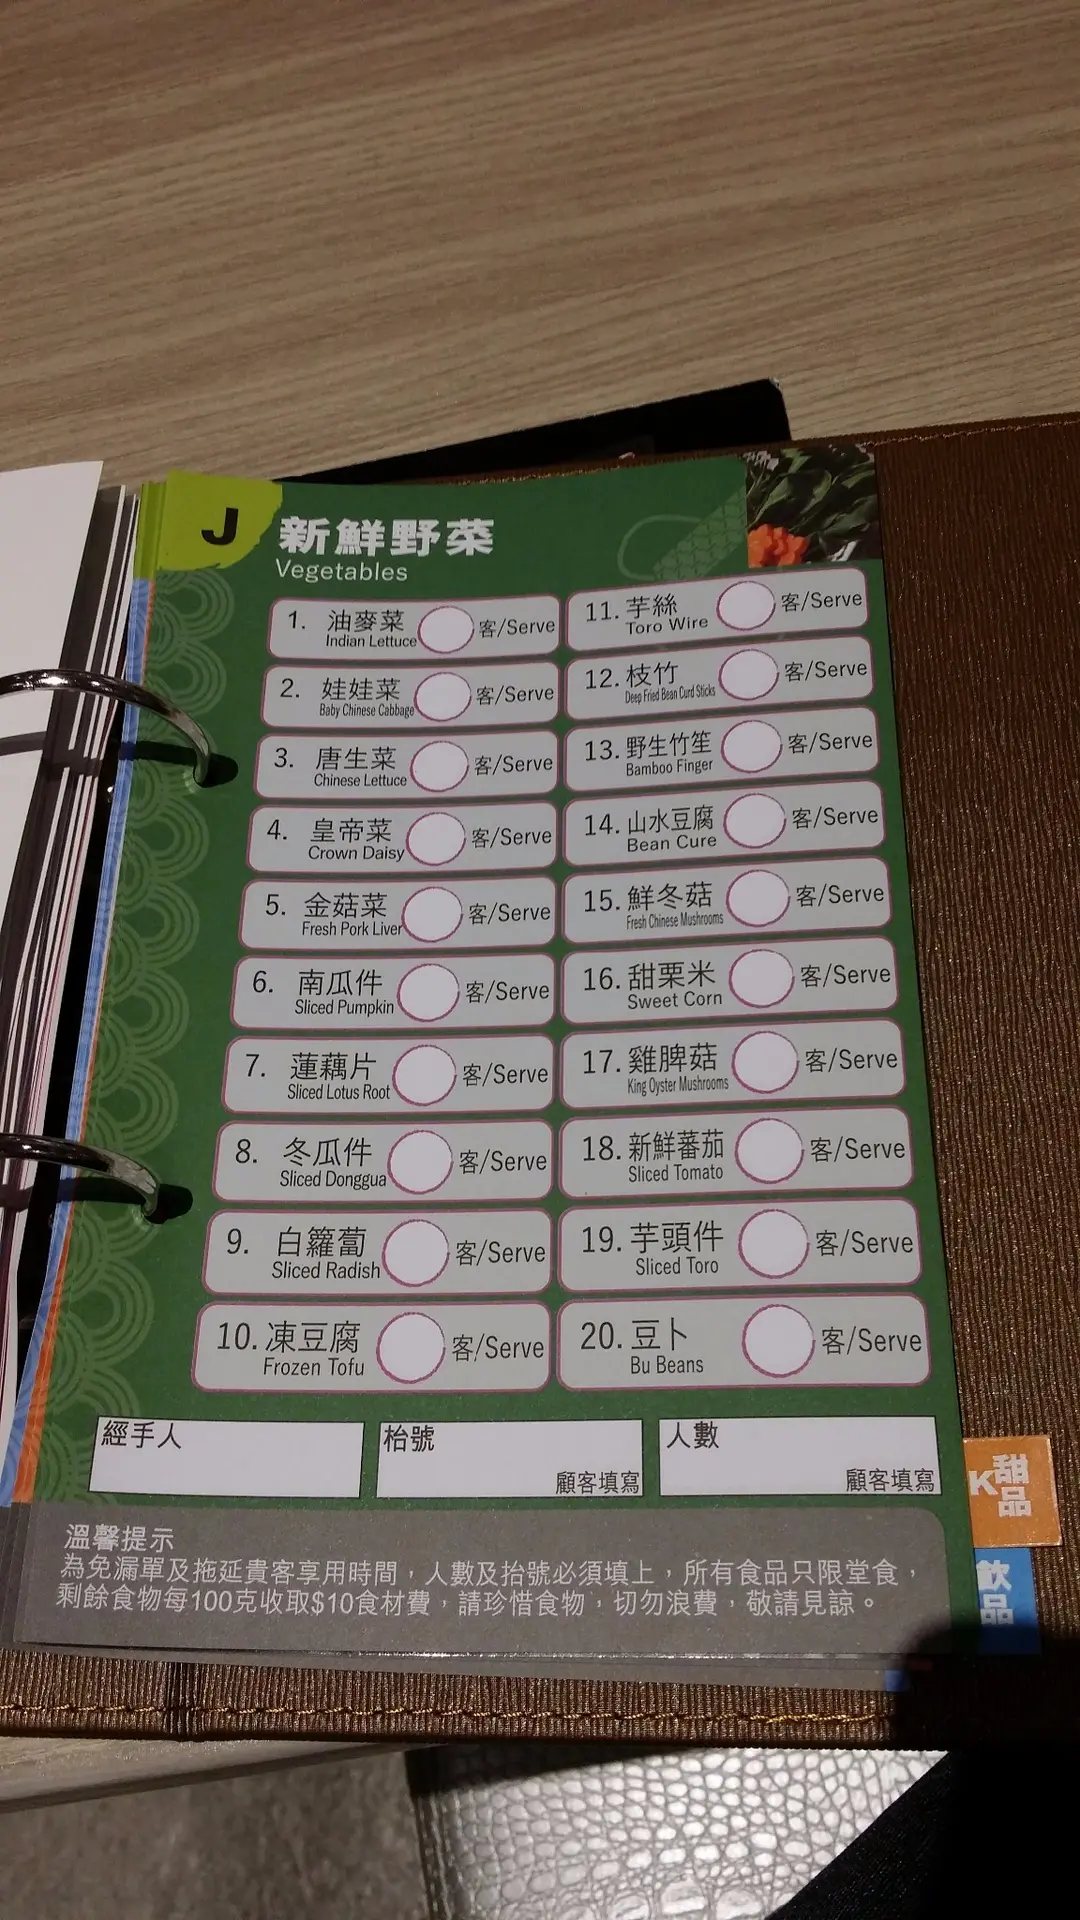 J
新鮮野菜
Vegetables
1. 油麥菜 客/Serve
Indian Lettuce
2. 娃娃菜 客/Serve
Baby Chinese Cabbage
3. 唐生菜 客/Serve
Chinese Lettuce
4. 皇帝菜 客/Serve
Crown Daisy
5. 金菇菜 客/Serve
Fresh Pork Liver
6. 南瓜件 客/Serve
Sliced Pumpkin
7. 蓮藕片 客/Serve
Sliced Lotus Root
8. 冬瓜件 客/Serve
Sliced Donggua
9. 白籮蔔 客/Serve
Sliced Radish
10. 凍豆腐 客/Serve
Frozen Tofu
11. 芋絲 客/Serve
Toro Wire
12. 枝竹 客/Serve
Deep Fried Bean Curd Sticks
13. 野生竹笙 客/Serve
Bamboo Finger
14. 山水豆腐 客/Serve
Bean Cure
15. 鮮冬菇 客/Serve
Fresh Chinese Mushrooms
16. 甜栗米 客/Serve
Sweet Corn
17. 雞脾菇 客/Serve
King Oyster Mushrooms
18. 新鮮蕃茄 客/Serve
Sliced Tomato
19. 芋頭件 客/Serve
Sliced Toro
20. 豆卜 客/Serve
Bu Beans
經手人
枱號
顧客填寫
人數
顧客填寫
溫馨提示
為免漏單及拖延貴客享用時間，人數及抬號必須填上，所有食品只限堂食，
剩餘食物每100克收取$10食材費，請珍惜食物，切勿浪費，敬請見諒。
K 甜品
飲品